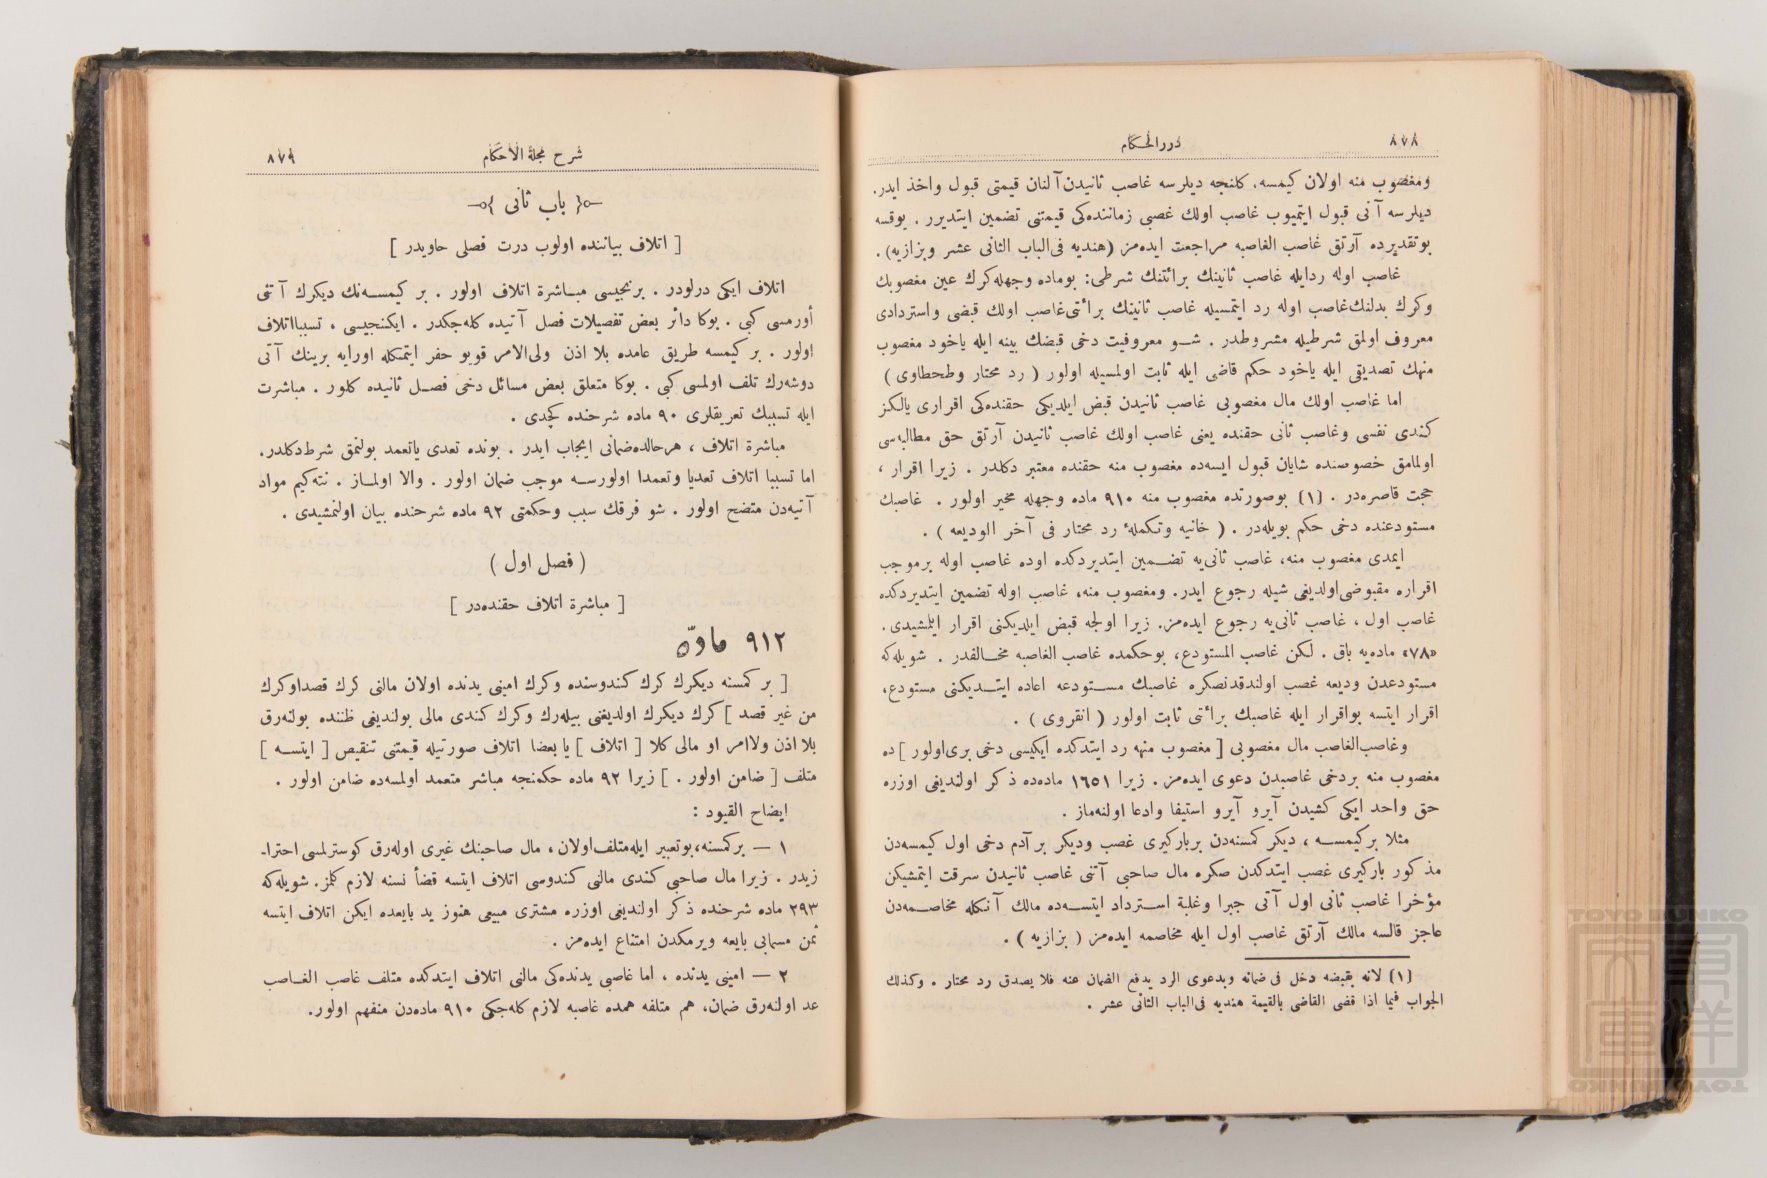 ٨٧٨
دررالحكام
ومغصوب منه اولان كيمسه، كلنجه ديلرسه غاصب ثانيدن آلنان قيمتى قبول واخذ ايدر.
ديلرسه آنى قبول ايتميوب غاصب اولك غصبى زماننده‌كى قيمتنى تضمين ايتديرر . يوقسه
بوتقديرده آرتق غاصب الغاصبه مراجعت ايده‌مز (هنديه فى‌الباب الثانى عشر وبزازيه).
غاصب اوله ردايله غاصب ثانينك برائتنك شرطى: بوماده وجهله‌كرك عين مغصوبك
وكرك بدلنك‌غاصب اوله رد ايتمسيله غاصب ثانينك برائتى‌غاصب اولك قبضى واستردادى
معروف اولمق شرطيله مشروطدر . شو معروفيت دخى قبضك بينه ايله ياخود مغصوب
منهك تصديقى ايله ياخود حكم قاضى ايله ثابت اولمسيله اولور ( رد مختار وطحطاوى )
اما غاصب اولك مال مغصوبى غاصب ثانيدن قبض ايلديكى حقنده‌كى اقرارى يالكز
كندى نفسى وغاصب ثانى حقنده يعنى غاصب اولك غاصب ثانيدن آرتق حق مطالبه‌سى
اولمامق خصوصنده شايان قبول ايسه‌ده مغصوب منه حقنده معتبر دكلدر . زيرا اقرار ،
حجت قاصره‌در . (١) بوصورتده مغصوب منه ٩١٠ ماده وجهله مخير اولور . غاصبك
مستودعنده دخى حكم بويله‌در . ( خانيه وتكملۀ رد مختار فى آخر الوديعه ) .
ايمدى مغصوب منه، غاصب ثانى‌يه تضمين ايتديردكده اوده غاصب اوله برموجب
اقراره مقبوضى‌اولديغى شيله رجوع ايدر. ومغصوب منه، غاصب اوله تضمين ايتديردكده
غاصب اول ، غاصب ثانى‌يه رجوع ايده‌مز. زيرا اولجه قبض ايلديكنى اقرار ايلمشيدى.
«٧٨» ماده‌يه باق . لكن غاصب المستودع، بوحكمده غاصب الغاصبه مخالفدر . شويله‌كه
مستودعدن وديعه غصب اولندقدنصكره غاصبك مستودعه اعاده ايتديكنى مستودع،
اقرار ايتسه بواقرار ايله غاصبك برائتى ثابت اولور ( انقروى ) .
وغاصب‌الغاصب مال مغصوبى [ مغصوب منهه رد ايتدكده ايكيسى دخى برى‌اولور ] ده
مغصوب منه بردخى غاصبدن دعوى ايده‌مز . زيرا ١٦٥١ ماده‌ده ذكر اولنديغى اوزره
حق واحد ايكى كشيدن آيرو آيرو استيفا وادعا اولنه‌ماز .
مثلا بركيمسه ، ديكر كمسنه‌دن بربارکيرى غصب وديكر بر آدم دخى اول كيمسه‌دن
مذكور باركيرى غصب ايتدكدن صكره مال صاحبى آتنى غاصب ثانيدن سرقت ايتمشيكن
مؤخرا غاصب ثانى اول آتى جبرا وغلبة استرداد ايتسه‌ده مالك آنكله مخاصمه‌دن
عاجز قالسه مالك آرتق غاصب اول ايله مخاصمه ايده‌مز ( بزازيه ) .
(١) لانه بقبضه دخل فى ضمانه وبدعوى الرد يدفع الضمان عنه فلا يصدق رد مختار . وكذلك
الجواب فيما اذا قضى القاضى بالقيمة هنديه فى‌الباب الثانى عشر .
شرح مجلة الأحكام
٨٧٩
باب ثانى
[ اتلاف بياننده اولوب درت فصلى حاويدر ]
اتلاف ايكى درلودر . برنجيسى مباشرة اتلاف اولور . بر كيمسه‌نك ديكرك آتنى
أورمسى كبى . بوكا دائر بعض تفصيلات فصل آتيده كله‌جكدر . ايكنجيسى ، تسببااتلاف
اولور . بر كيمسه طريق عامده بلا اذن ولى‌الامر قويو حفر ايتمكله اورايه برينك آتى
دوشه‌رك تلف اولمسى كبى . بوكا متعلق بعض مسائل دخى فصل ثانيده كلور . مباشرت
ايله تسببك تعريفلرى ٩٠ ماده شرحنده كچدى .
مباشرة اتلاف ، هرحالده‌ضمانى ايجاب ايدر . بونده تعدى ياتعمد بولنمق شرط‌دكلدر.
اما تسببا اتلاف تعديا وتعمدا اولورسه موجب ضمان اولور . والا اولماز . نته‌كيم مواد
آتيه‌دن متضح اولور . شو فرقك سبب وحكمتى ٩٢ ماده شرحنده بيان اولنمشيدى .
( فصل اول )
[ مباشرة اتلاف حقنده‌در ]
٩١٢ مادّه
[ بر كمسنه ديكرك كرك كندوسنده وكرك امينى يدنده اولان مالنى كرك قصداوكرك
من غير قصد ] كرك ديكرك اولديغنى بيله‌رك وكرك كندى مالى بولنديغى ظننده بولنه‌رق
بلا اذن ولاامر او مالى كلا [ اتلاف ] يا بعضا اتلاف صورتيله قيمتنى تنقيص [ ايتسه ]
متلف [ ضامن اولور . ] زيرا ٩٢ ماده حكمنجه مباشر متعمد اولمسه‌ده ضامن اولور .
ايضاح القيود :
١ — بركمسنه،بوتعبير ايله‌متلف‌اولان ، مال صاحبنك غيرى اوله‌رق كوسترلمسى احترا۔
زيدر . زيرا مال صاحبى كندى مالنى كندوسى اتلاف ايتسه قضأ نسنه لازم كلمز. شويله‌كه
٢٩٣ ماده شرحنده ذكر اولنديغى اوزره مشترى مبيعى هنوز يد بايعده ايكن اتلاف ايتسه
ثمن مسمايى بايعه ويرمكدن امتناع ايده‌مز .
٢ — امينى يدنده ، اما غاصبى يدنده‌كى مالنى اتلاف ايتدكده متلف غاصب الغاصب
عد اولنه‌رق ضمان، هم متلفه همده غاصبه لازم كله‌جكى ٩١٠ ماده‌دن منفهم اولور.
TOYO BUNKO